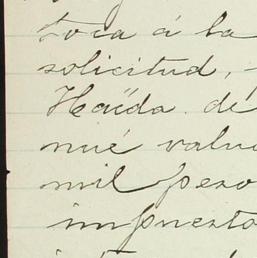 toca á la
solicitud,
Haïda. dé
nué valu
mil peso
impuesto